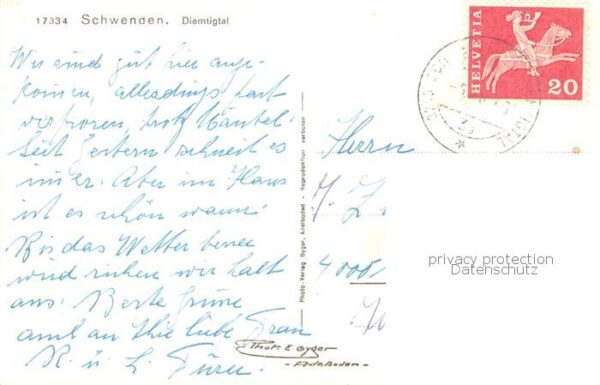 17334 Schwenden. Diemtigtal
Wir sind gut hier ange-
kommen, allerdings fast
verfroren, trotz Mäntel.
Seit gestern schneit es
immer. Aber im Haus
ist es schön warm.
Bis das Wetter besser
wird ruhen wir halt
aus. Beste Grüsse
auch an Ihre liebe Frau
R. u. L.
HELVETIA
20
Herrn
4000
privacy protection
Datenschutz
Photo-Verlag Gyger, Adelboden - Reproduktion verboten
Phot. E. Gyger
- Adelboden -